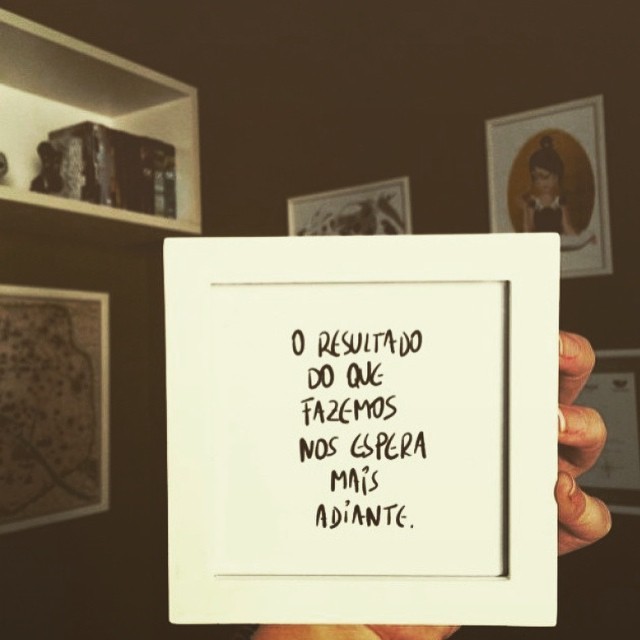 O RESULTADO
DO QUE
FAZEMOS
NOS ESPERA
MAIS
ADIANTE.